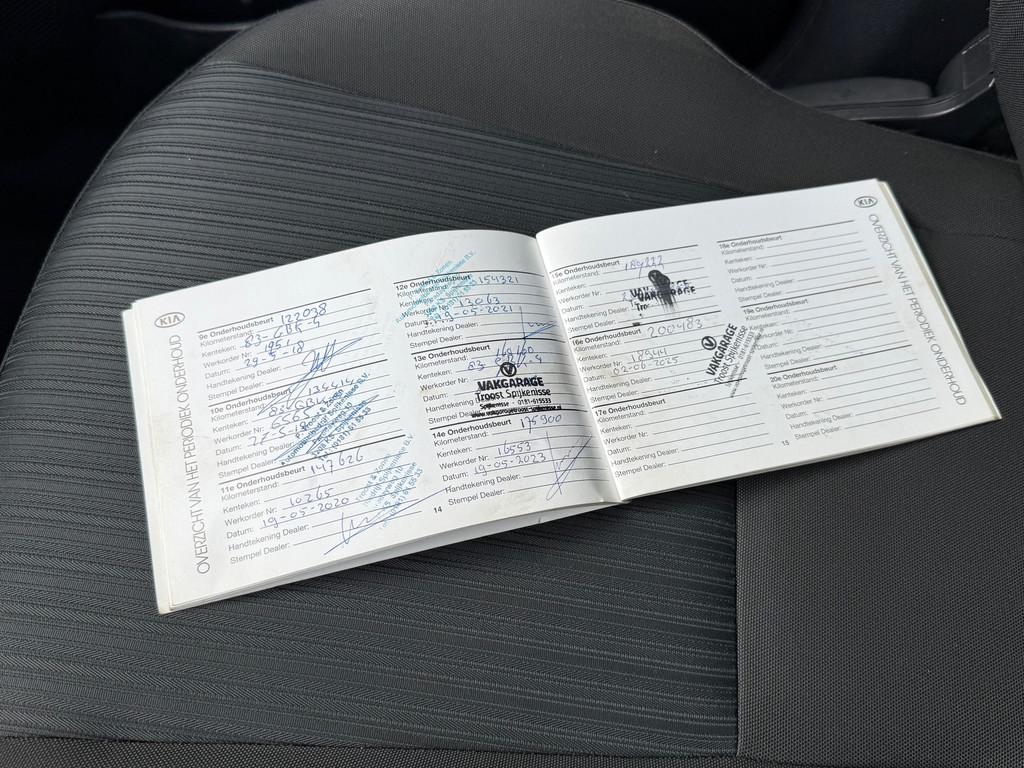 KIA
OVERZICHT VAN HET PERIODIEK ONDERHOUD
9e Onderhoudsbeurt
Kilometerstand: 122038
Kenteken: 83-GBR-4
Werkorder Nr: 1951
Datum: 29-5-18
Handtekening Dealer:
Stempel Dealer:
10e Onderhoudsbeurt
Kilometerstand: 134414
Kenteken:
Werkorder Nr:
Datum:
Handtekening Dealer:
Stempel Dealer:
11e Onderhoudsbeurt
Kilometerstand: 147626
Kenteken:
Werkorder Nr: 10265
Datum: 19-05-2020
Handtekening Dealer:
Stempel Dealer:
12e Onderhoudsbeurt
Kilometerstand: 154321
Kenteken:
Werkorder Nr: 13063
Datum: 19-05-2021
Handtekening Dealer:
Stempel Dealer:
13e Onderhoudsbeurt
Kilometerstand:
Kenteken:
Werkorder Nr:
Datum:
Handtekening
Stempel Dealer:
VAKGARAGE
Troost Spijkenisse
Spijkenisse - 0181-615533
www.vakgaragetroost-spijkenisse.nl
14e Onderhoudsbeurt
Kilometerstand: 175900
Kenteken:
Werkorder Nr: 16553
Datum: 19-05-2023
Handtekening Dealer:
Stempel Dealer:
14
KIA
OVERZICHT VAN HET PERIODIEK ONDERHOUD
15e Onderhoudsbeurt
Kilometerstand: 189222
Kenteken:
Werkorder Nr:
Datum:
Handtekening Dealer:
Stempel Dealer:
VAKGARAGE
16e Onderhoudsbeurt
Kilometerstand: 200483
Kenteken:
Werkorder Nr: 18944
Datum: 02-06-2025
Handtekening Dealer:
Stempel Dealer:
VAKGARAGE
Troost Spijkenisse
17e Onderhoudsbeurt
Kilometerstand:
Kenteken:
Werkorder Nr:
Datum:
Handtekening Dealer:
Stempel Dealer:
18e Onderhoudsbeurt
Kilometerstand:
Kenteken:
Werkorder Nr:
Datum:
Handtekening Dealer:
Stempel Dealer:
19e Onderhoudsbeurt
Kilometerstand:
Kenteken:
Werkorder Nr:
Datum:
Handtekening Dealer:
Stempel Dealer:
20e Onderhoudsbeurt
Kilometerstand:
Kenteken:
Werkorder Nr:
Datum:
Handtekening Dealer:
Stempel Dealer:
15